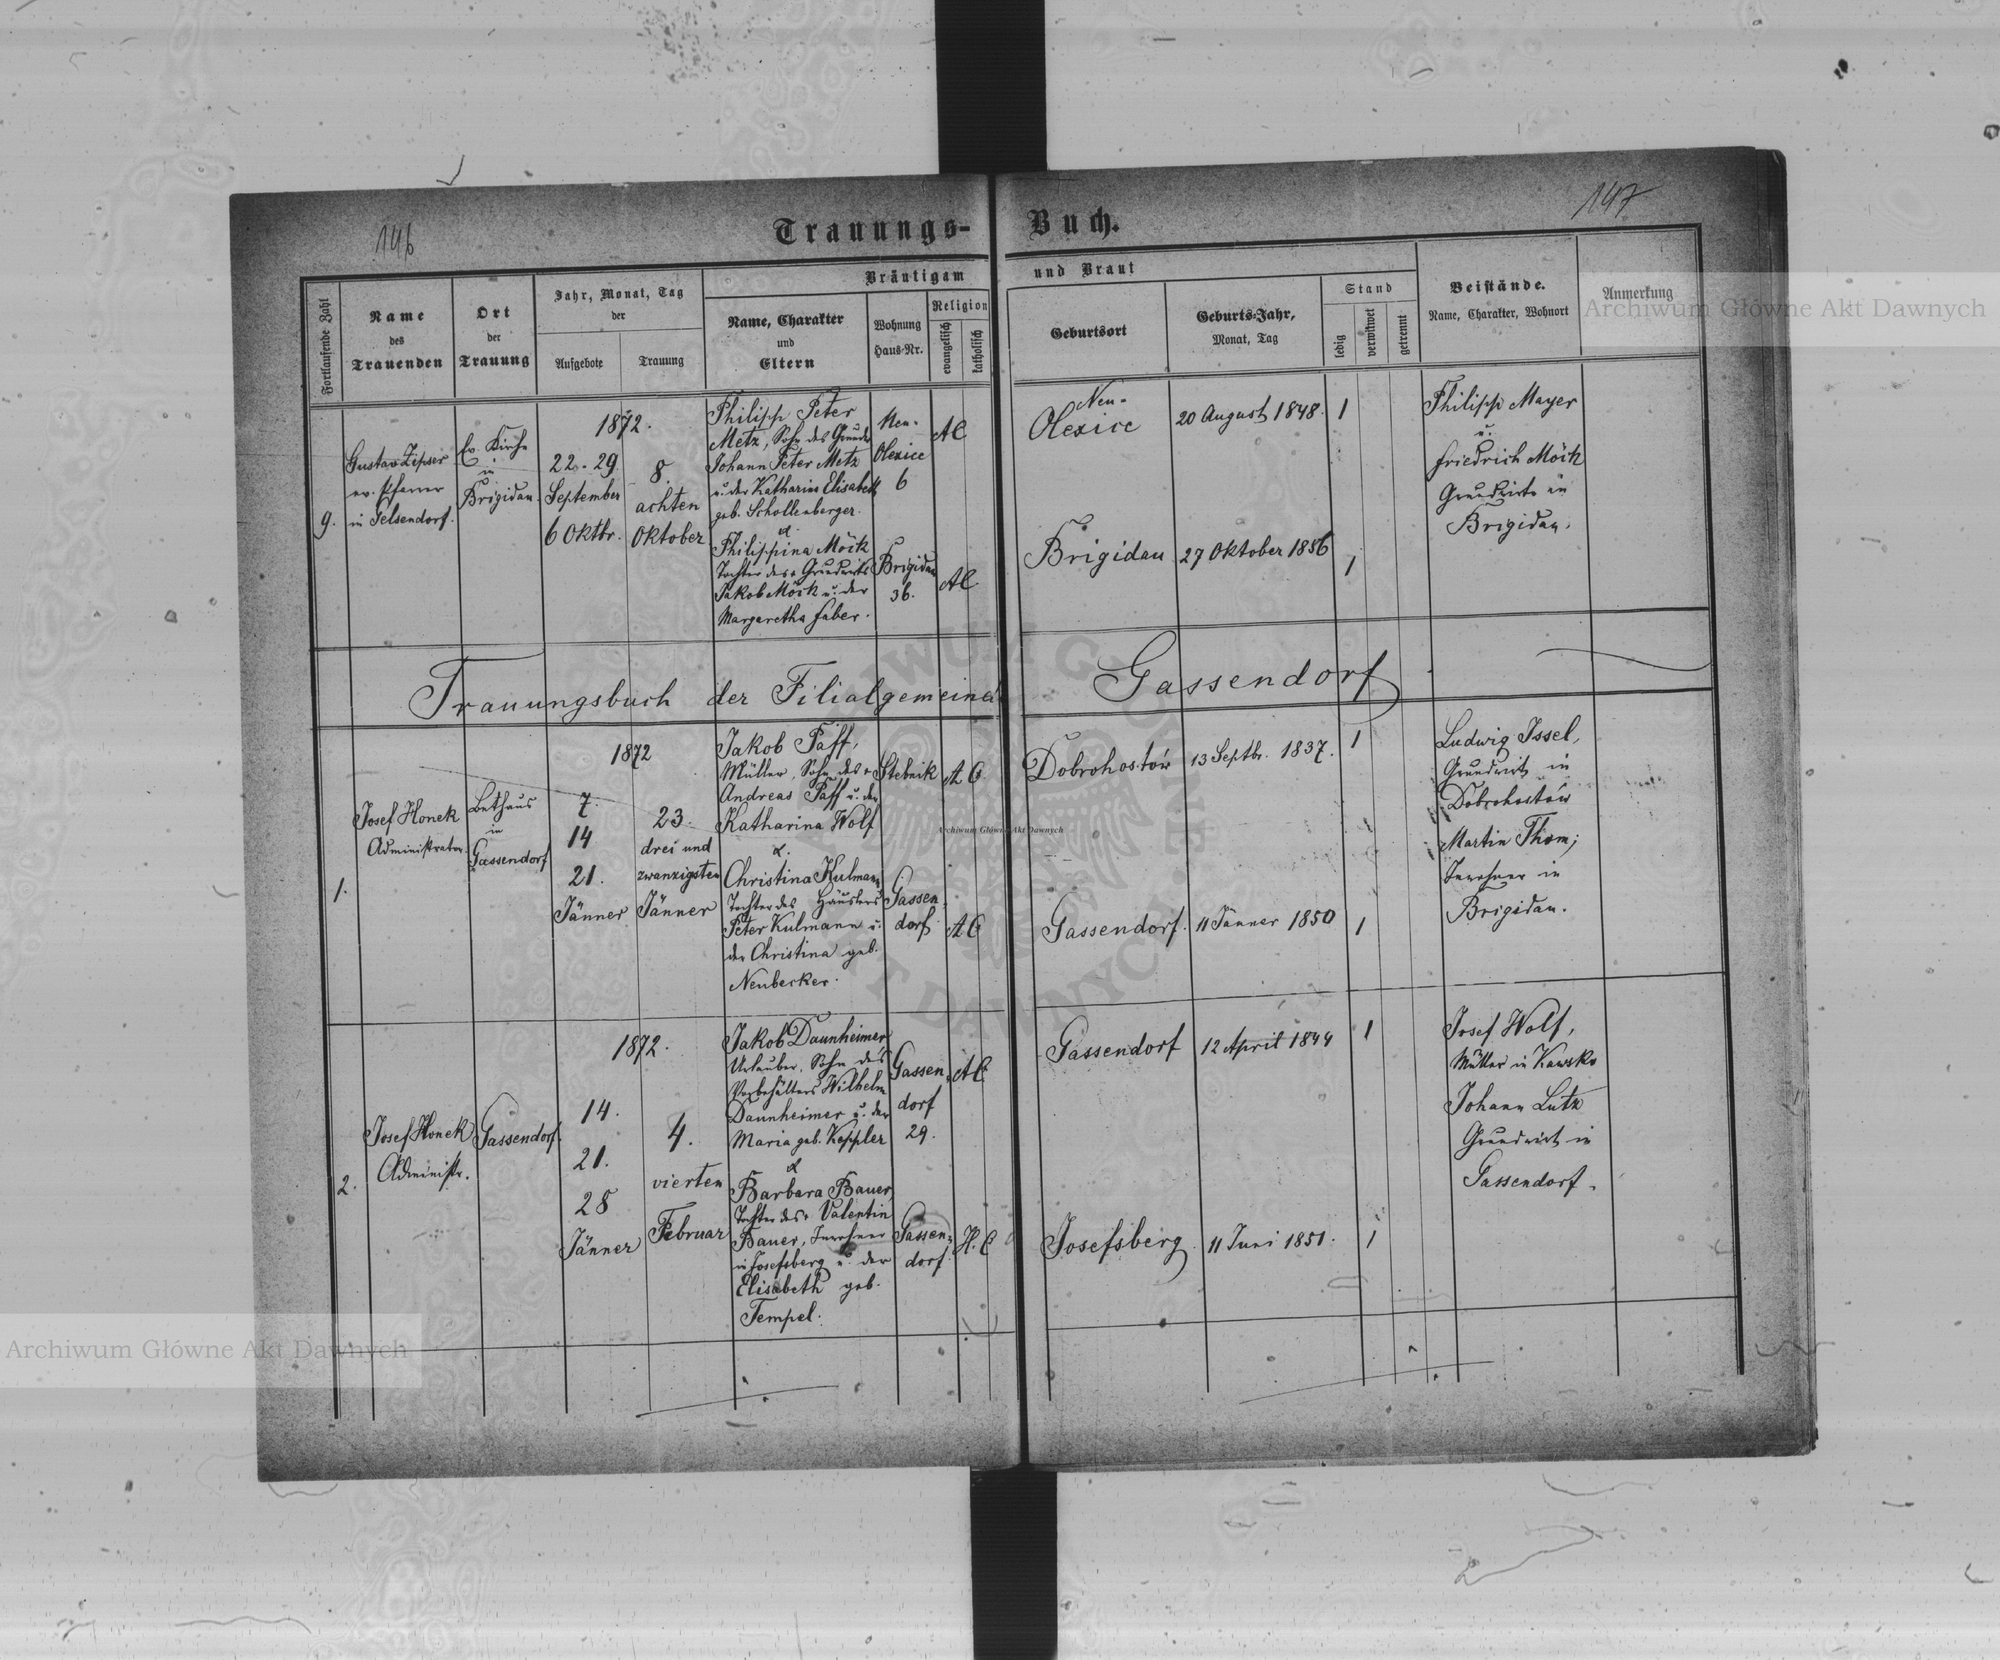 146
147
Trauungs-Buch.
Bräutigam und Braut
Fortlaufende Zahl
Name
des
Trauenden
Ort
der
Trauung
Jahr, Monat, Tag
der
Aufgebote
Trauung
Name, Charakter
und
Eltern
Wohnung
Haus-Nr.
Religion
evangelisch
katholisch
Geburtsort
Geburts-Jahr,
Monat, Tag
Stand
ledig
verwitwet
getrennt
Beistände.
Name, Charakter, Wohnort
Anmerkung
9.
Gustav Zipser
ev. Pfarrer
in Gelsendorf.
Ev. Kirche
in
Brigidau.
1872.
22. 29
September
6 Oktbr.
8.
achten
Oktober
Philipp Peter
Metz, Sohn des Grundw
Johann Peter Metz
u. der Katharina Elisabeth
geb. Schollenberger.
&
Philippina Möck
Tochter des + Grundwirts
Jakob Möck u. der
Margaretha Faber.
Neu-
Olexice
6
Brigidau
36.
AC
AC
Neu-
Olexice
Brigidau
20 August 1848.
27 Oktober 1856
1
1
Philipp Mayer
u.
Friedrich Möck
Grundwirte in
Brigidau.
Trauungsbuch der Filialgemeinde Gassendorf
1.
Josef Honek
Administrator.
Bethaus
in
Gassendorf
1872
7.
14
21.
Jänner
23.
drei und
zwanzigsten
Jänner
Jakob Paff,
Müller, Sohn des +
Andreas Paff u. der
Katharina Wolf
&.
Christina Kulmann,
Tochter des Häuslers
Peter Kulmann u.
der Christina geb.
Neubecker.
Stebnik
Gassen-
dorf
A. C.
A C
Dobrohostów
Gassendorf.
13 Septbr. 1837.
11 Jänner 1850
1
1
Ludwig Issel,
Grundwirt in
Dobrohostów
Martin Thom;
Inwohner in
Brigidau.
2.
Josef Honek
Administr.
Gassendorf.
1872.
14.
21.
28
Jänner
4.
vierten
Februar
Jakob Daunheimer,
Urlauber, Sohn des
Vorbehälters Wilhelm
Daunheimer u. der
Maria geb. Keppler
&
Barbara Bauer,
Tochter des + Valentin
Bauer, Inwohner
in Josefsberg u. der
Elisabeth geb.
Tempel.
Gassen-
dorf
29.
Gassen-
dorf.
A C
H. C
Gassendorf
Josefsberg
12 April 1844
11 Juni 1851.
1
1
Josef Wolf,
Müller in Kawsko
Johann Lutz
Grundwirt in
Gassendorf.
Archiwum Główne Akt Dawnych
Archiwum Główne Akt Dawnych
Archiwum Główne Akt Dawnych